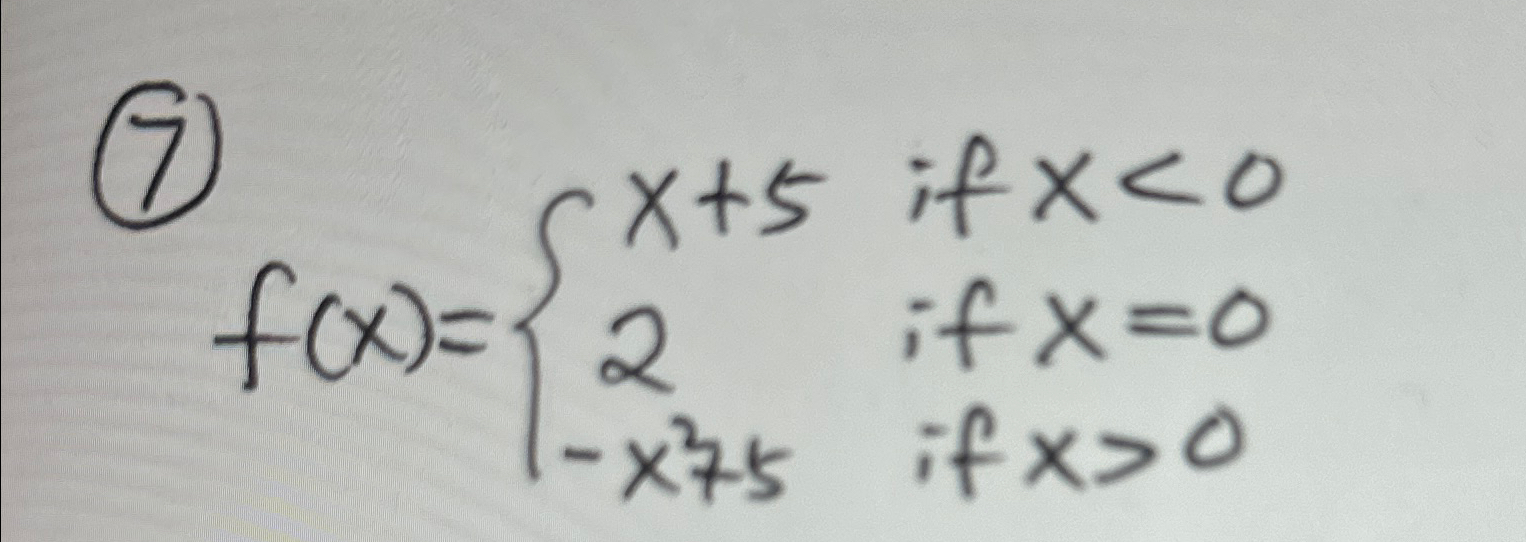 ⑦
x+5 if x<0
f(x)= { 2 if x=0
-x²+5 if x>0